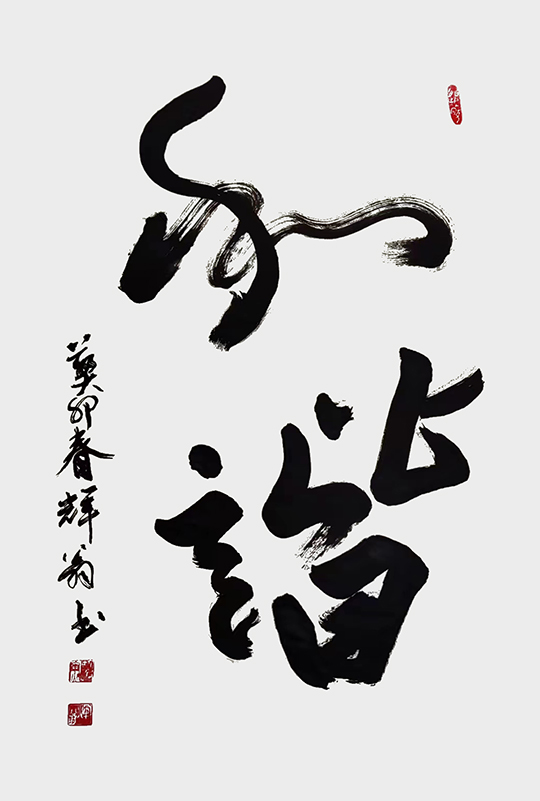 和諧
癸卯春輝翁书